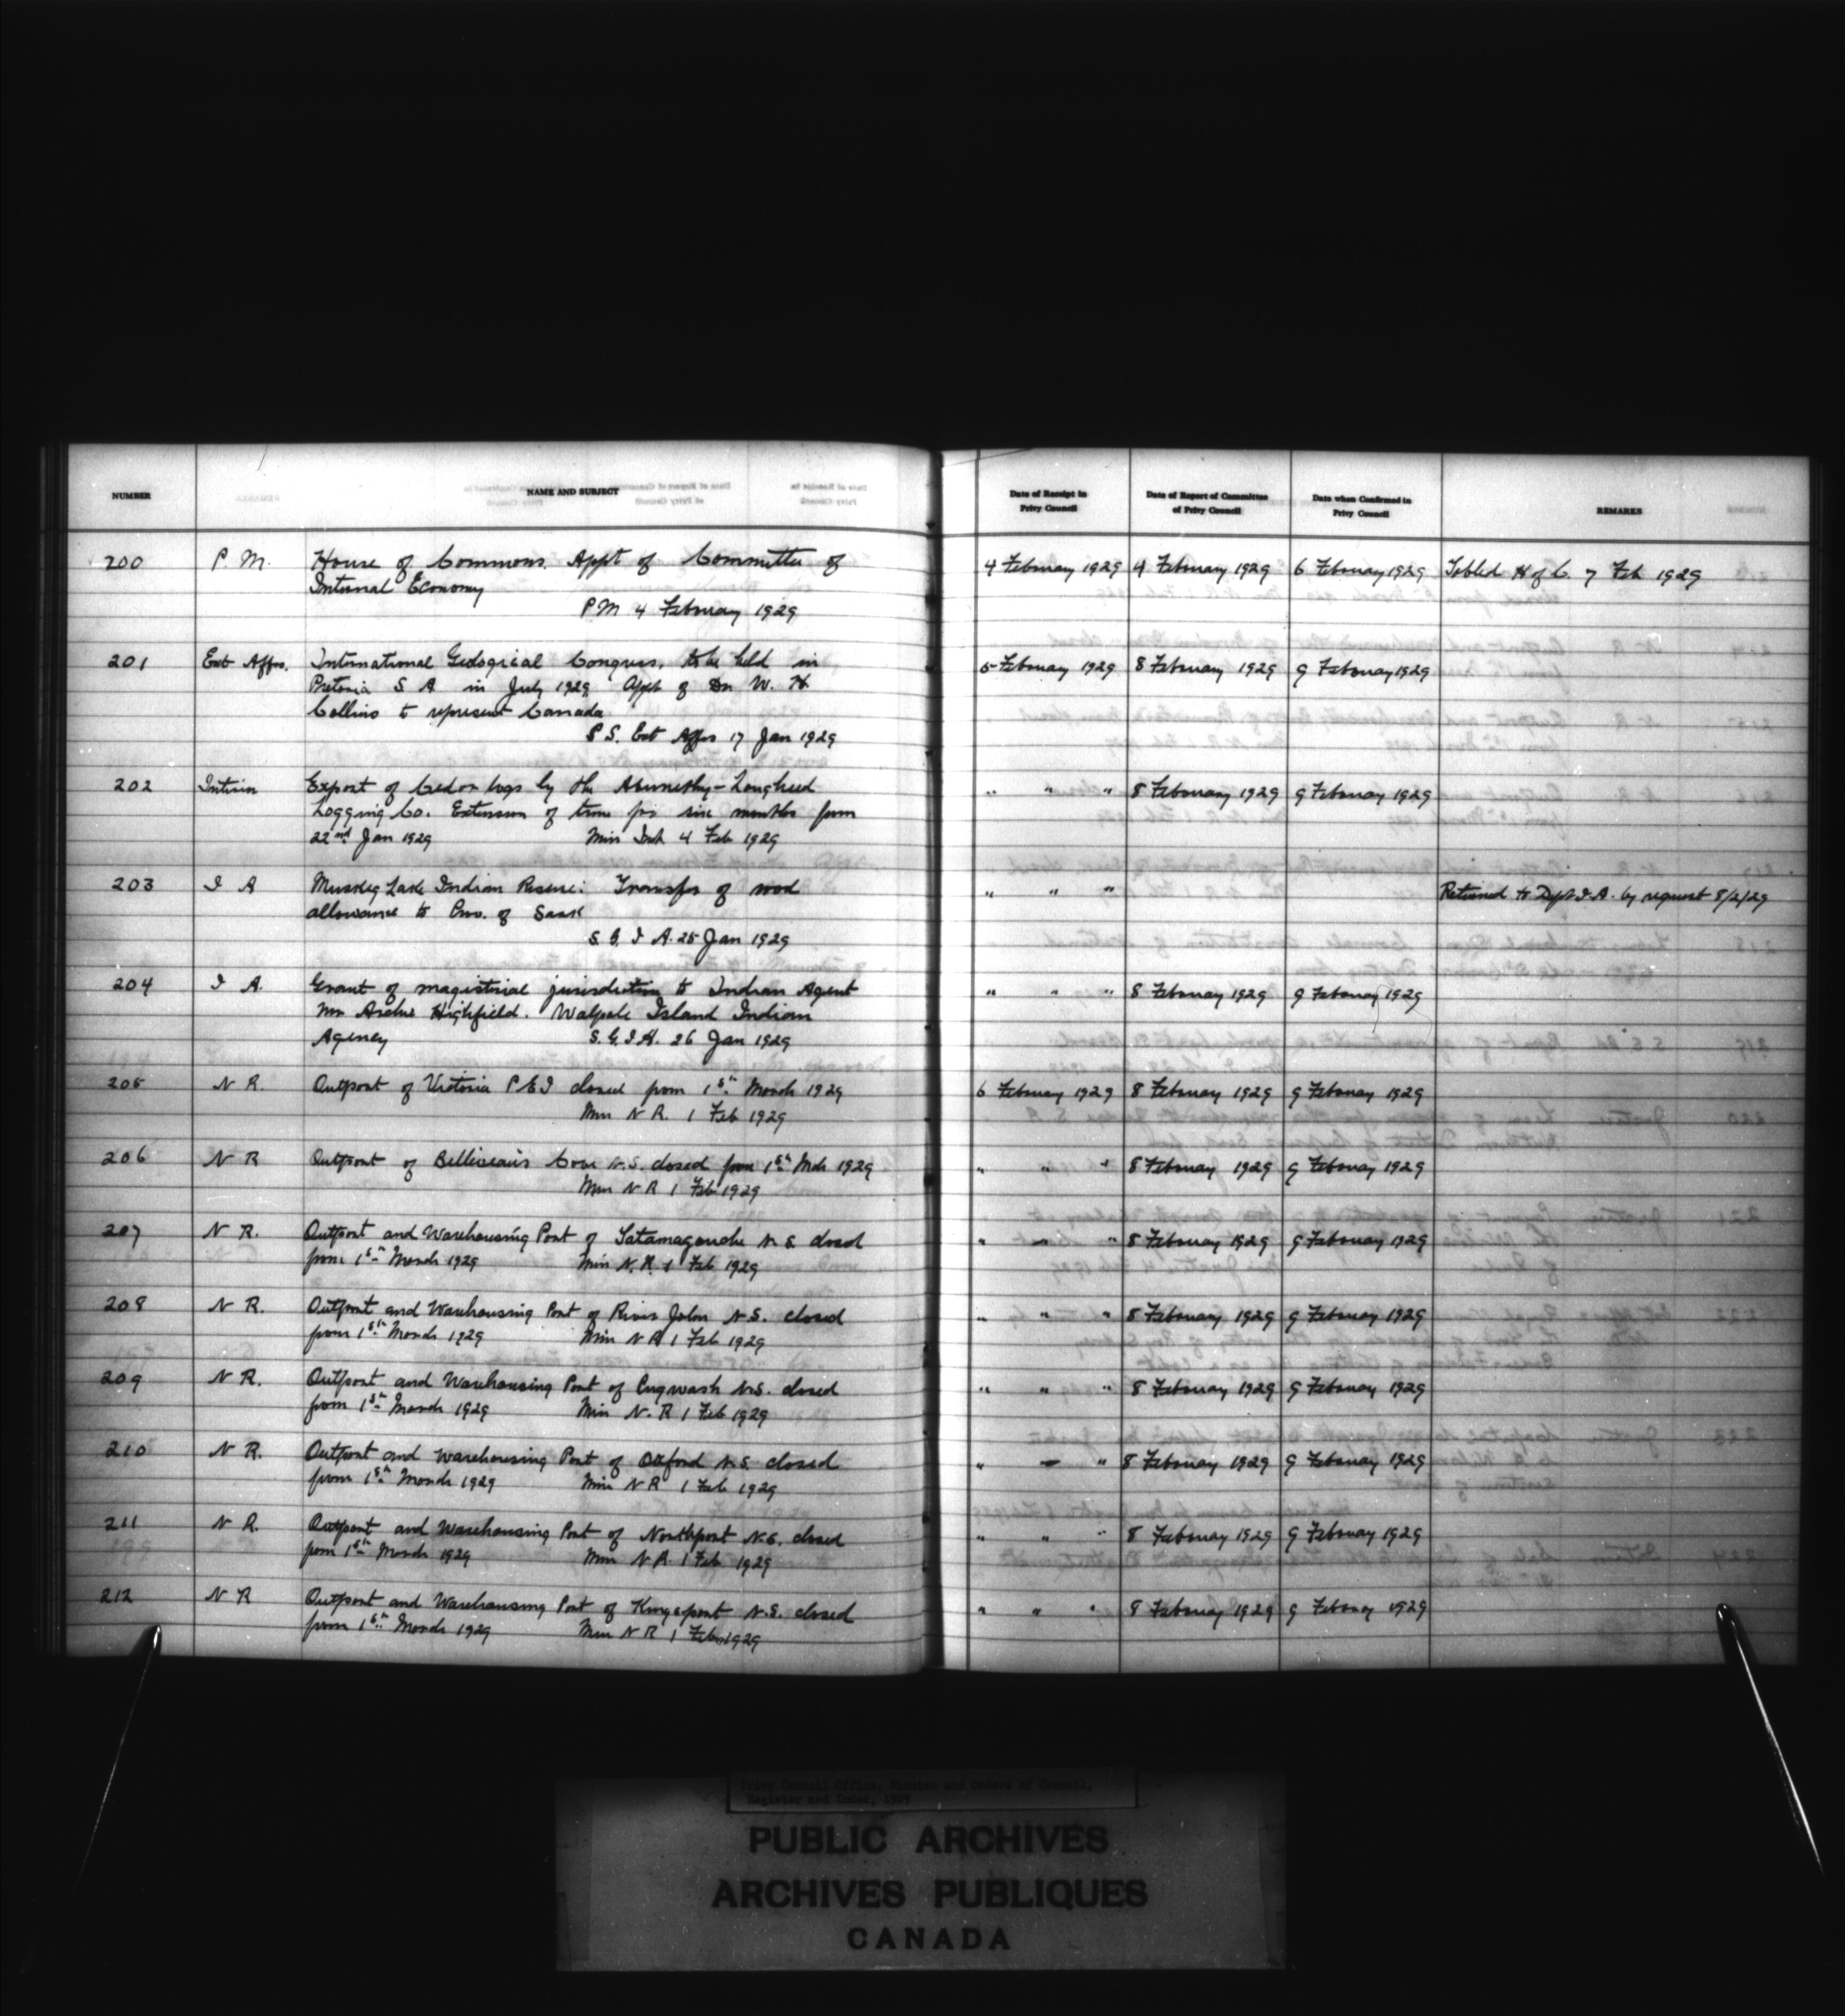 NUMBER NAME AND SUBJECT Date of Receipt in Privy Council Date of Report of Committee of Privy Council Date when Confirmed in Privy Council REMARKS
200 P. M. House of Commons. Appt of Committee of 4 February 1929 4 February 1929 6 February 1929 Tabled H of C. 7 Feb 1929
Internal Economy
P M 4 February 1929
201 Ext Affrs. International Geological Congress, to be held in 5 February 1929 8 February 1929 9 February 1929
Pretoria S A in July 1929 Appt of Dr W. H
Collins to represent Canada
S S. Ext Affrs 17 Jan 1929
202 Interior Export of Cedar logs by the Abernethy-Lougheed " " " 8 February 1929 9 February 1929
Logging Co. Extension of time for six months from
22nd Jan 1929 Min Int 4 Feb 1929
203 I A Muskeg Lake Indian Reserve: Transfer of road " " " Returned to Dept I. A. by request 8/2/29
allowance to Prov. of Sask
S. G. I A. 25 Jan 1929
204 I A. Grant of magisterial jurisdiction to Indian Agent " " " 8 February 1929 9 February 1929
Mr Archie Highfield. Walpole Island Indian
Agency S. G. I A. 26 Jan 1929
205 N R. Outport of Victoria P E I closed from 1st March 1929 6 February 1929 8 February 1929 9 February 1929
Min N R. 1 Feb 1929
206 N R Outport of Belliveau's Cove N.S. closed from 1st Mch 1929 " " " 8 February 1929 9 February 1929
Min N R 1 Feb 1929
207 N R. Outport and Warehousing Port of Tatamagouche N S closed " " " 8 February 1929 9 February 1929
from 1st March 1929 Min N. R. 1 Feb 1929
208 N R. Outport and Warehousing Port of River John N S. closed " " " 8 February 1929 9 February 1929
from 1st March 1929 Min N R 1 Feb 1929
209 N R. Outport and Warehousing Port of Pugwash N.S. closed " " " 8 February 1929 9 February 1929
from 1st March 1929 Min N. R 1 Feb 1929
210 N R. Outport and Warehousing Port of Oxford N.S. closed " " " 8 February 1929 9 February 1929
from 1st March 1929 Min N R 1 Feb 1929
211 N R. Outport and Warehousing Port of Northport N.S. closed " " " 8 February 1929 9 February 1929
from 1st March 1929 Min N R. 1 Feb 1929
212 N R Outport and Warehousing Port of Kingsport N.S. closed " " " 8 February 1929 9 February 1929
from 1st March 1929 Min N R 1 Feb 1929
Privy Council Office, Minutes and Orders of Council,
Register and Index, 1929
PUBLIC ARCHIVES
ARCHIVES PUBLIQUES
CANADA